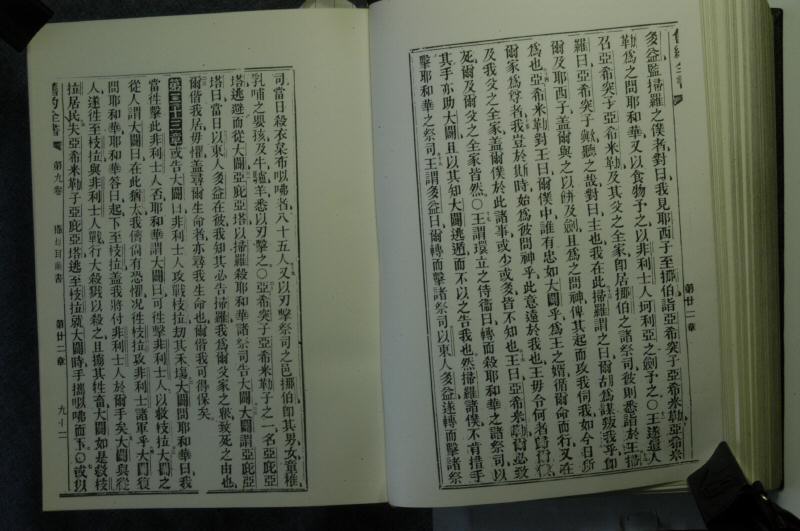 多益監掃羅之僕者對曰我見耶西子至挪伯詣亞希突子亞希米勒亞希米
勒爲之問耶和華又以食物予之以非利士人坷利亞之劍予之〇王遂遣人
召亞希突子亞希米勒及其父之全家卽居挪伯之諸祭司彼則悉詣於王掃
羅曰亞希突子歟聽之哉對曰主也我在此掃羅謂之曰爾胡爲謀叛我乎卽
爾及耶西子蓋爾與之以餅及劍且爲之問神俾其起而攻我伺我如今日所
爲也亞希米勒對王曰爾僕中誰有忠如大闢乎爲王之婿循爾命而行又在
爾家爲尊者我豈於此時始爲彼問神乎此意遠於我也王毋令何者
及我父之全家蓋爾僕於此諸事或少或多皆不知也王曰亞希米勒爾必致
死爾及爾父之全家皆然〇王謂環立之侍衞曰轉而殺耶和華之諸祭司以
其手亦助大闢且以其知大闢逃遁而不以之告我也然掃羅諸僕不肯措手
擊耶和華之祭司王謂多益曰爾轉而擊諸祭司以東人多益遂轉而擊諸祭
司當日殺衣枲布以咈者八十五人又以刃擊祭司之邑挪伯卽其男女童稚
乳哺之嬰孩及牛驢羊悉以刃擊之〇亞希突子亞希米勒子之一名亞庇亞
塔逃避而從大闢亞庇亞塔以掃羅殺耶和華諸祭司告大闢大闢謂亞庇亞
塔曰當日以東人多益在彼我知其必告掃羅我爲爾父家之衆致死之由也
爾偕我居毋懼蓋尋爾生命者亦尋我生命也爾偕我可得保矣
第二十三章或告大闢曰非利士人攻戰枝拉刧其禾塲大闢問耶和華曰我
當往擊此非利士人否耶和華謂大闢曰可往擊非利士人以救枝拉大闢之
從人謂大闢曰在此猶太我儕尚有恐懼况往枝拉攻非利士諸軍乎大闢復
問耶和華耶和華答曰起下至枝拉蓋我將付非利士人於爾手矣大闢與從
人遂往至枝拉與非利士人戰行大殺戮以殺之且擄其牲畜大闢如是救枝
拉居民夫亞希米勒子亞庇亞塔逃至枝拉就大闢時手攜以咈而下〇或以
舊約全書 第九卷 撒母耳前書 第廿二章
第廿二章